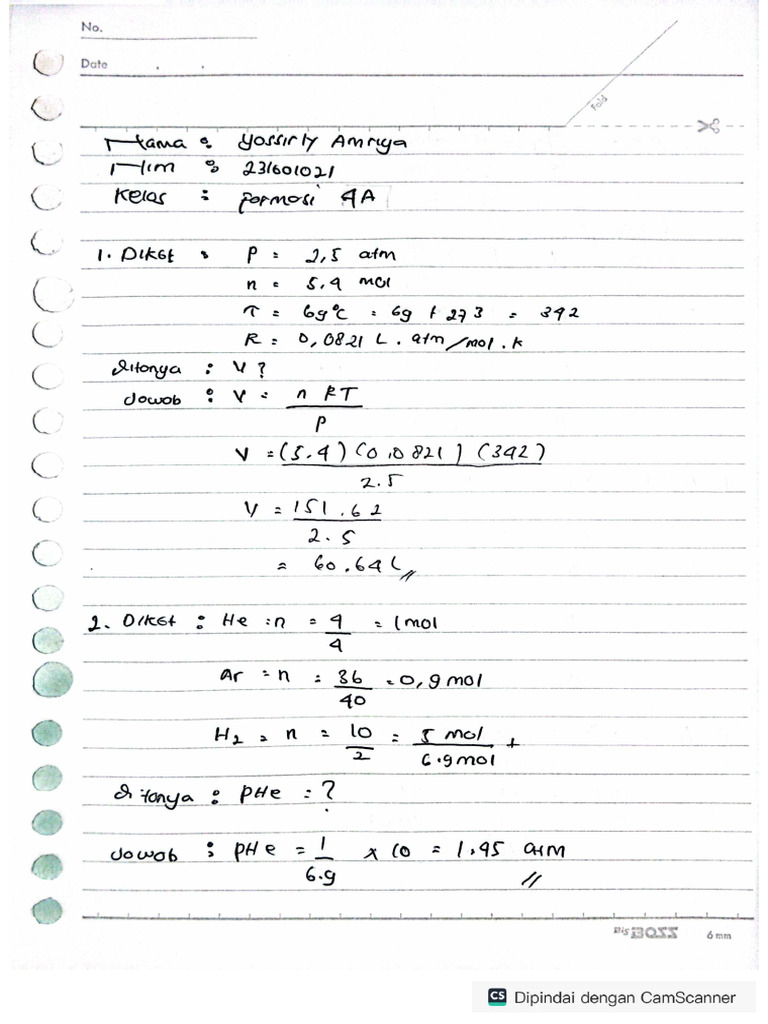 No.
Date . .
Fold
Nama : Yossirly Amriya
Nim : 231601021
Kelas : Farmasi 4A
1. Diket : P = 2,5 atm
n = 5.4 mol
T = 69°C = 69 + 273 = 342
R = 0,0821 L . atm/mol . k
Ditanya : V ?
Jawab : V = n RT
P
V = (5.4) (0,0821) (342)
2.5
V = 151.62
2.5
= 60.64 L //
2. Diket : He : n = 4 = 1 mol
4
Ar = n = 36 = 0,9 mol
40
H2 = n = 10 = 5 mol +
2 6.9 mol
Ditanya : pHe = ?
Jawab : pHe = 1 x 10 = 1.45 atm
6.9 //
Big BOSS 6 mm
CS Dipindai dengan CamScanner